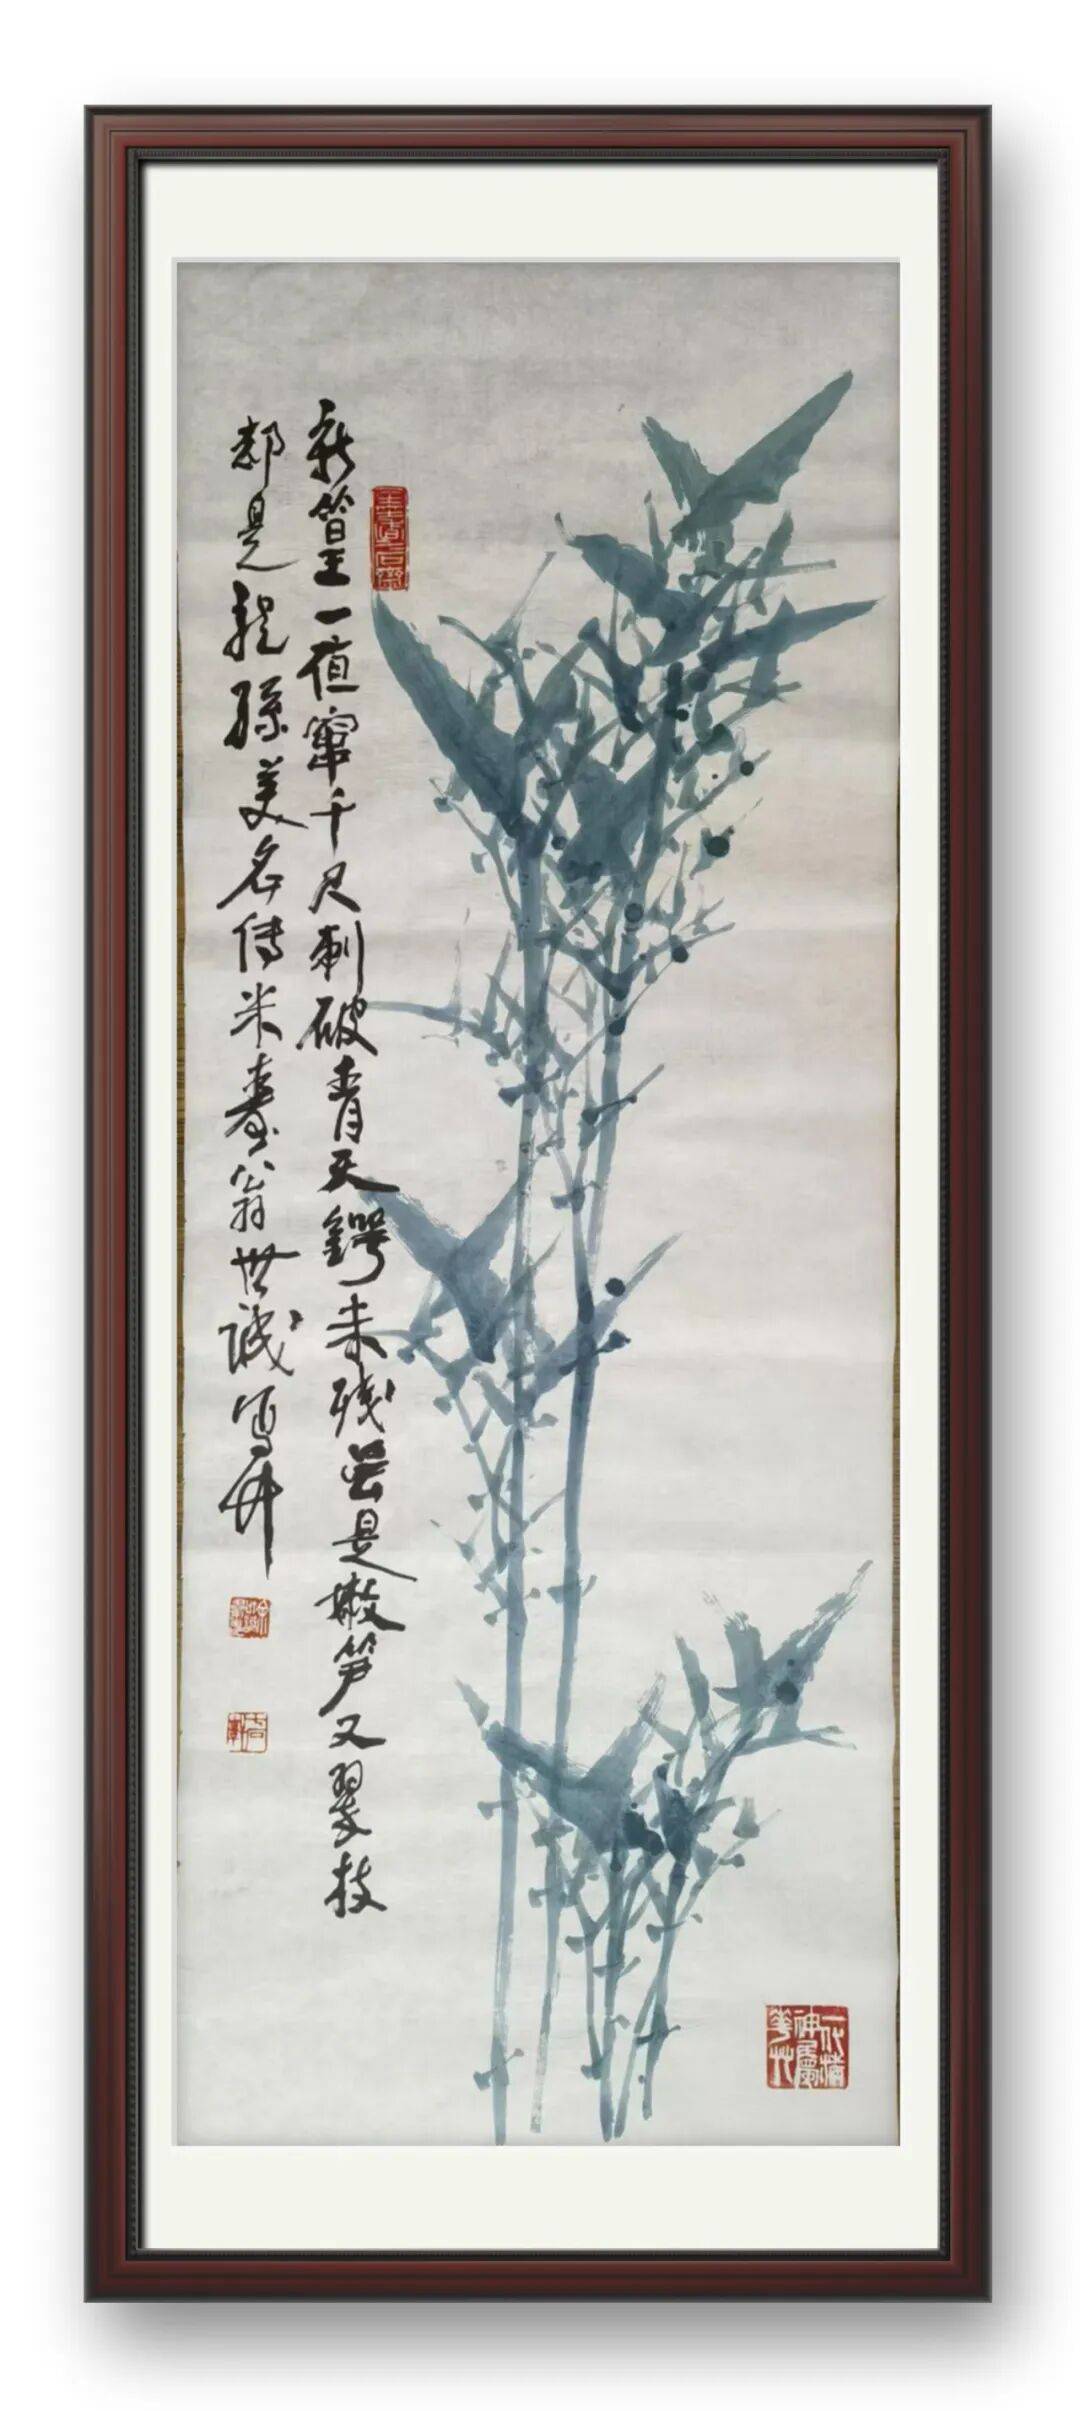 新篁一值窜千尺刺破青天锷未残昙是嫩笋又翠枝
都是龙孙美名传米寿翁世诚写竹